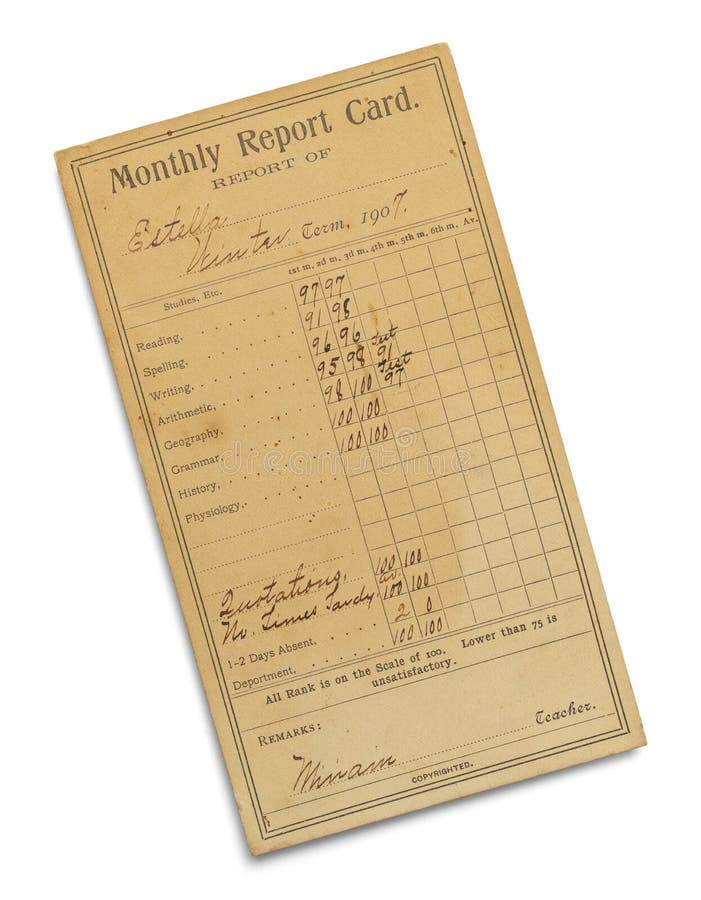 Monthly Report Card.
REPORT OF
Estella
Winter Term, 1907.
Studies, Etc. 1st m. 2d m. 3d m. 4th m. 5th m. 6th m. Av.
Reading, 97 97
Spelling, 91 98
Writing, 96 96 Test
Arithmetic, 95 98 91
Geography, 98 100 Test 97
Grammar, 100 100
History, 100 100
Physiology,
Quotations, 100 100
av.
No. Times Tardy, 100 100
1-2 Days Absent, 2 0
Department, 100 100
All Rank is on the Scale of 100. Lower than 75 is
unsatisfactory.
Teacher.
REMARKS:
Miriam
COPYRIGHTED.
dreamstime.com